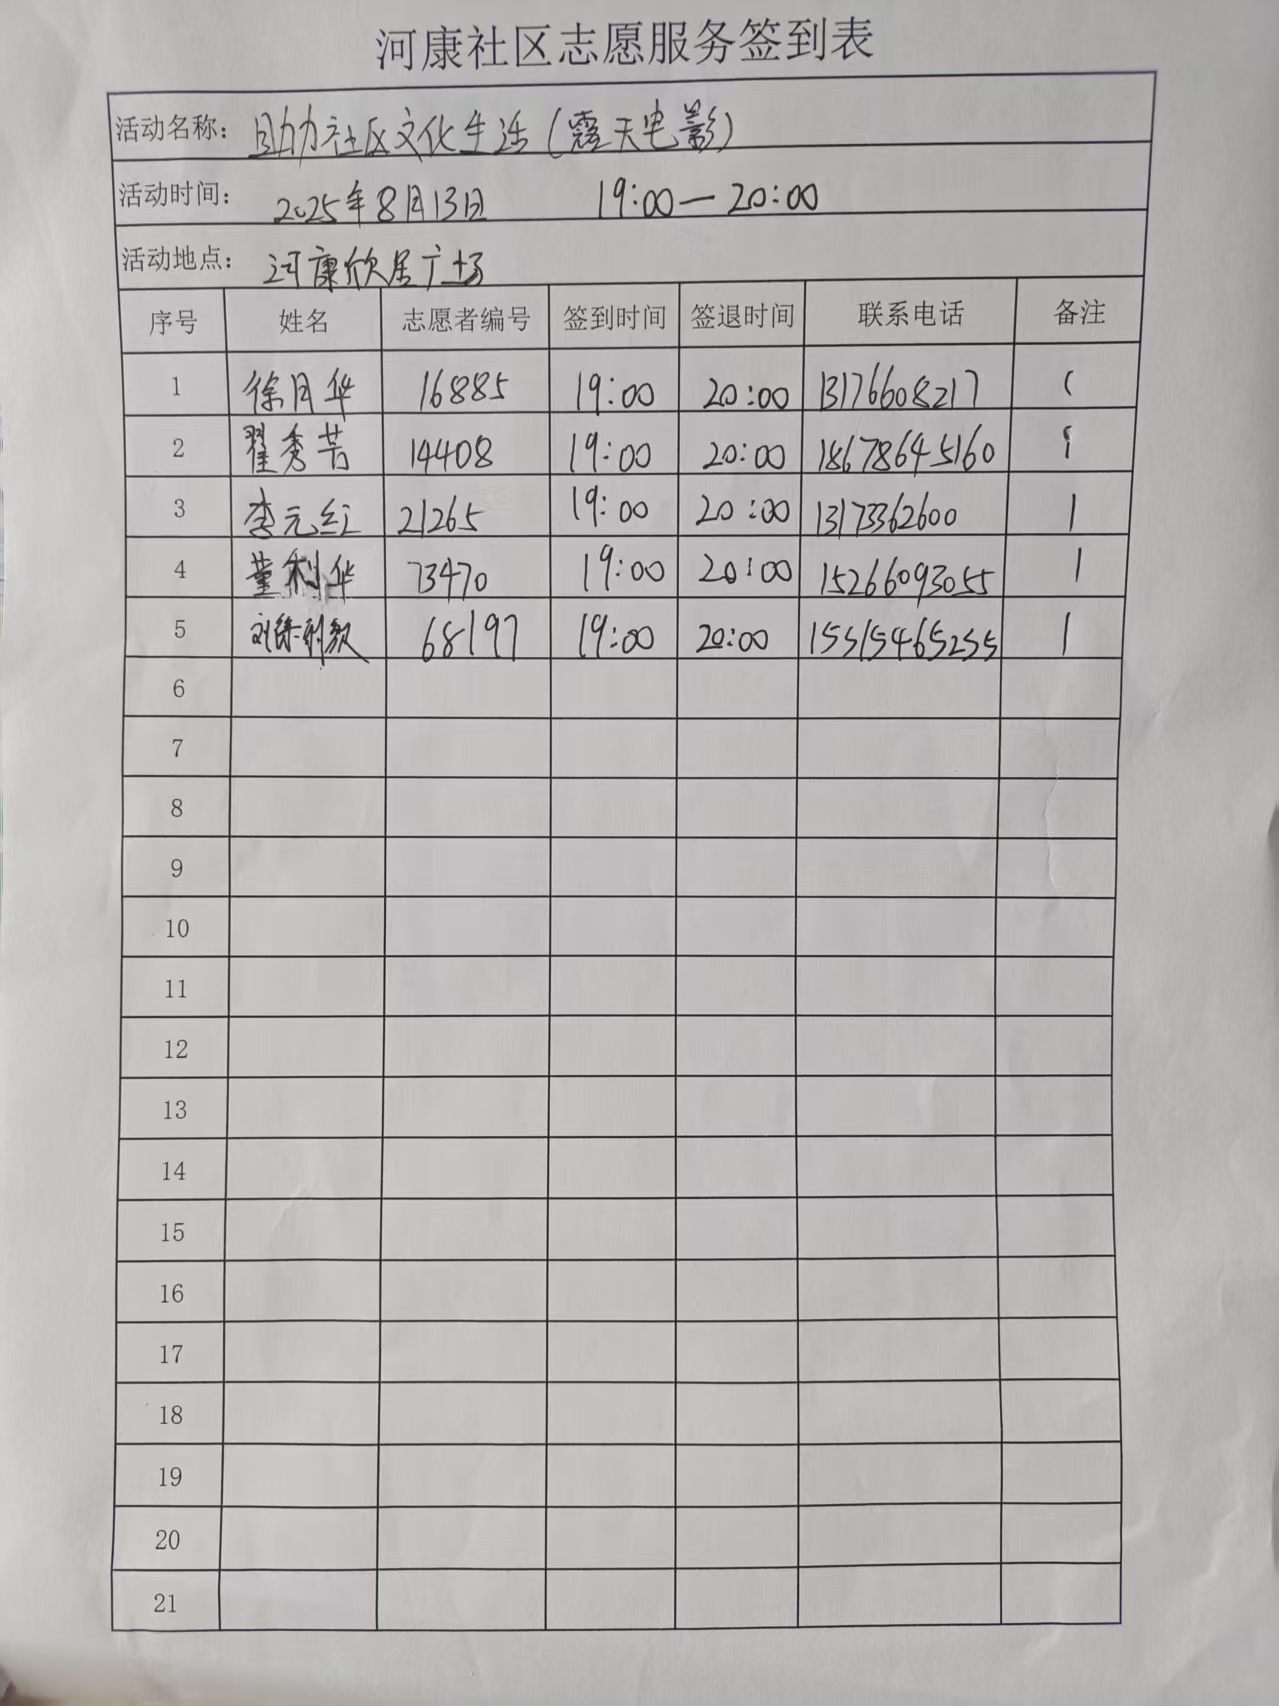 河康社区志愿服务签到表
活动名称： 助社区文化生活（露天电影）
活动时间： 2025年8月13日 19:00—20:00
活动地点： 河康欣居广场
序号 姓名 志愿者编号 签到时间 签退时间 联系电话 备注
1 徐月华 16885 19:00 20:00 13176608217 1
2 翟秀芳 14408 19:00 20:00 18678645160 1
3 李元红 21265 19:00 20:00 13173362600 1
4 董利华 73470 19:00 20:00 15266093055 1
5 68197 19:00 20:00 15515465255 1
6
7
8
9
10
11
12
13
14
15
16
17
18
19
20
21